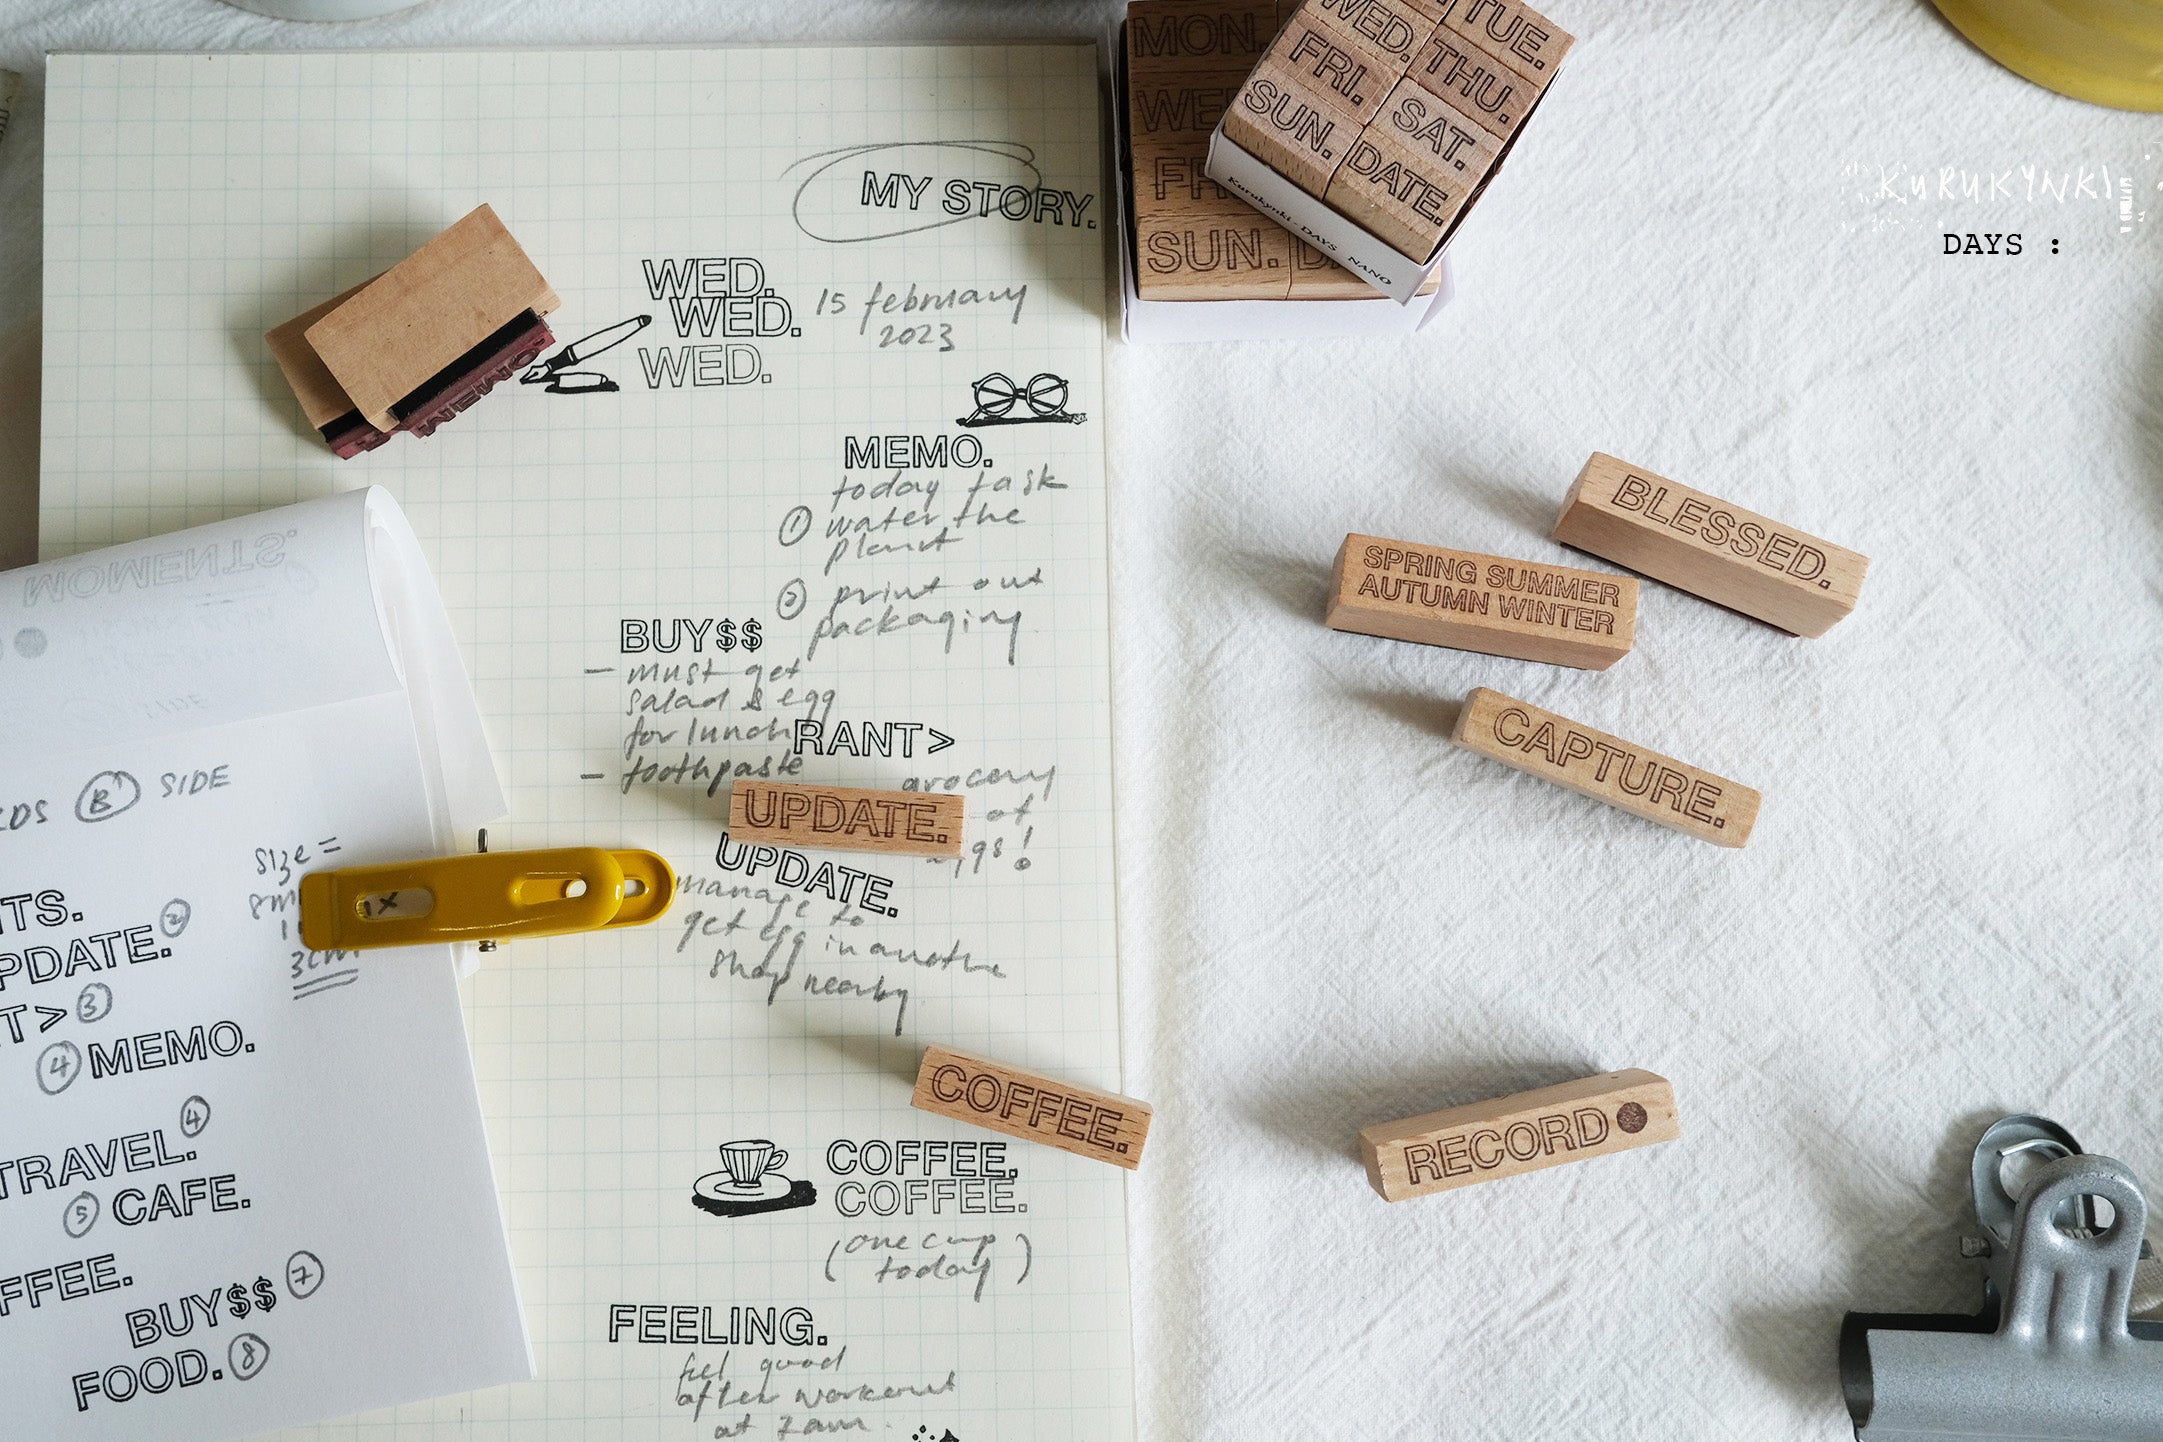 MY STORY.
WED.
WED.
WED.
15 february
2023
MEMO.
today task
① water the
plant
② print out
packaging
BUY$$
— must get
salad & egg
for lunch
— toothpaste
RANT>
grocery
of
UPDATE.
UPDATE.
manage to
get egg in another
shop nearby
COFFEE.
COFFEE.
COFFEE.
(one cup
today)
FEELING.
feel good
after workout
at 7am.
MOMENTS.
B' SIDE
size =
3cm
TS.
PDATE. ②
T> ③
④ MEMO.
TRAVEL. ④
⑤ CAFE.
FFEE.
BUY$$ ⑦
FOOD. ⑧
MEMO.
MON.
WE
FR
SUN. D
WED. TUE.
FRI. THU.
SUN. SAT.
DATE.
Kurukynki - DAYS NANO
KURUKYNKI
DAYS :
BLESSED.
SPRING SUMMER
AUTUMN WINTER
CAPTURE.
RECORD●